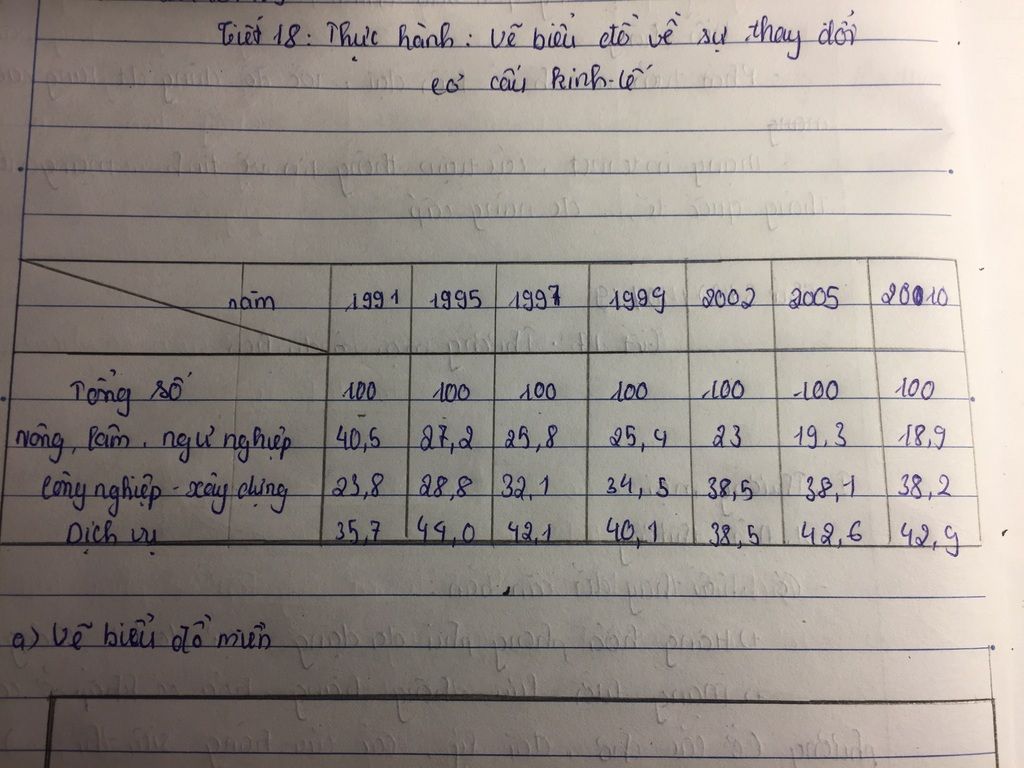 Tiết 18: Thực hành: Vẽ biểu đồ về sự thay đổi
cơ cấu kinh tế
năm 1991 1995 1997 1999 2002 2005 2010
Tổng số 100 100 100 100 100 100 100
Nông, lâm, ngư nghiệp 40,5 27,2 25,8 25,4 23 19,3 18,9
Công nghiệp - xây dựng 23,8 28,8 32,1 34,5 38,5 38,1 38,2
Dịch vụ 35,7 44,0 42,1 40,1 38,5 42,6 42,9
a) Vẽ biểu đồ miền